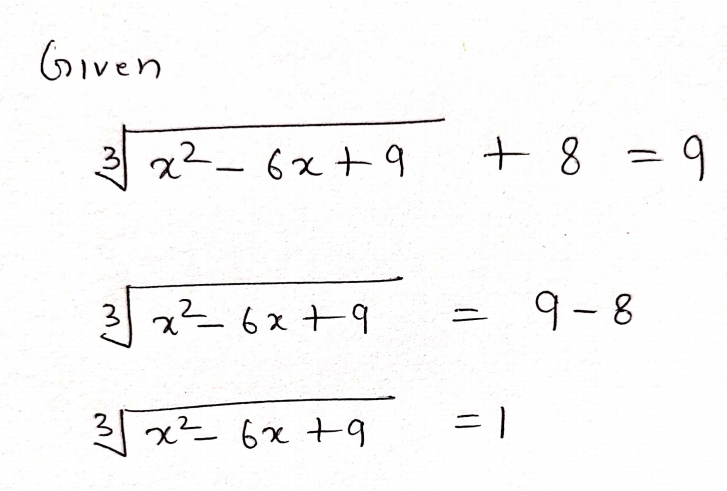 Given
∛(x² − 6x + 9) + 8 = 9
∛(x² − 6x + 9) = 9 − 8
∛(x² − 6x + 9) = 1